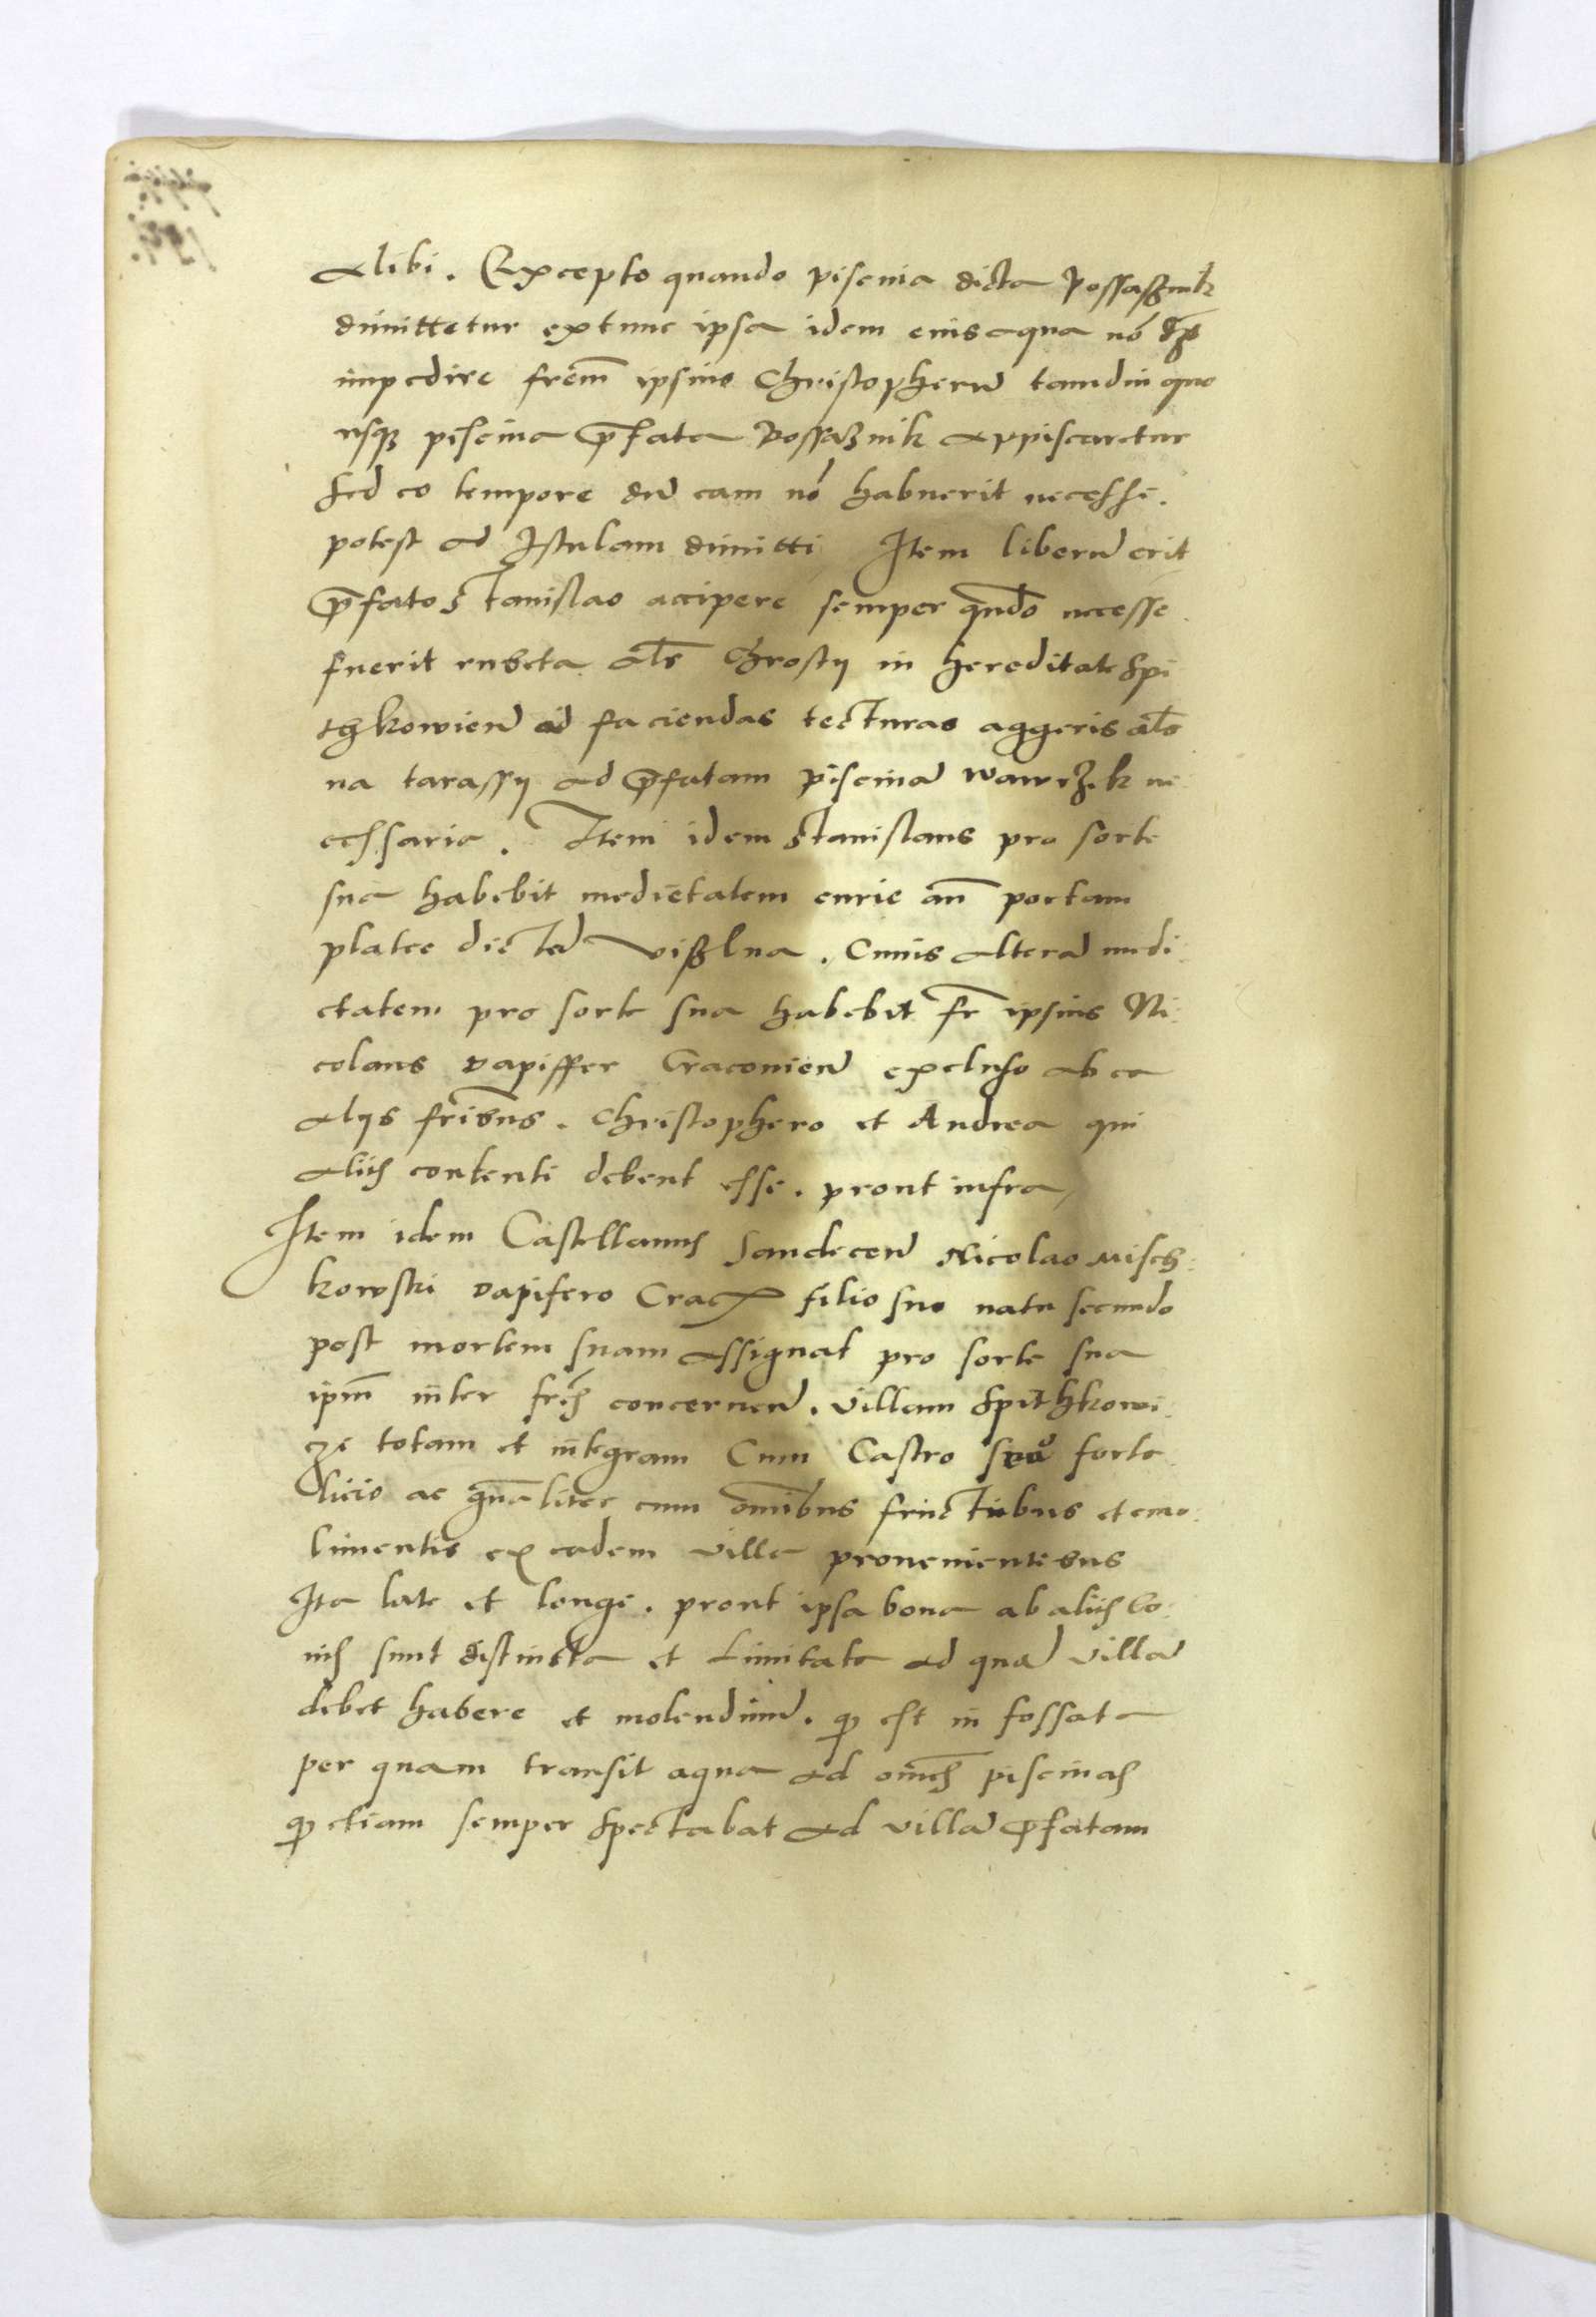 alibi. Excepto quando piscina dicta Possaßnik
dimittetur extunc ipsa idem eius aqua nõ
impedire fr̃em ipsius Christopherũ tamdiu quo
usq₃ piscina p̃fata Possaßnik appiscaretur
sed eo tempore dũ eam nõ habuerit necesse.
potest ad Istulam dimitti Item liberũ erit
p̃fato Stanislao accipere semper qñdo necesse
fuerit rubeta als̃ Chrosty in hereditate Spi
thkowień ad faciendas tecturas aggeris als̃
na tarassy ad p̃fatam piscinã Wawrzek ne
cessarie. Item idem Stanislaus pro sorte
sua habebit medietatem curie añ portam
platee dictã Vißlna. Cuius alterã medi:
etatem pro sorte sua habebit fr̃ ipsius Ni:
colaus Dapiffer Cracovień excluso ab ea
alys fr̃ibus. Christophero et Andrea qui
aliis contenti debent esse. prout infra
Item idem Castellanus Sandeceń Nicolao Misch:
kowski Dapifero Crac filio suo natu secundo
post mortem suam assignat pro sorte sua
ip̃m inter fr̃es concerneń. Villam Spithkowi:
cze totam et integram Cum Castro suo forte
licio ac gñaliter cum om̃ibus fructibus et emo:
limentis ex eadem villa provenientibus
Ita late et longe. prout ipsa bona ab aliis bo:
nis sunt distincta et limitata ad quã villã
debet habere et molendinũ. qͩ est in fossata
per quam transit aqua ad om̃es piscinas
qͩ etiam semper spectabat ad villã p̃fatam